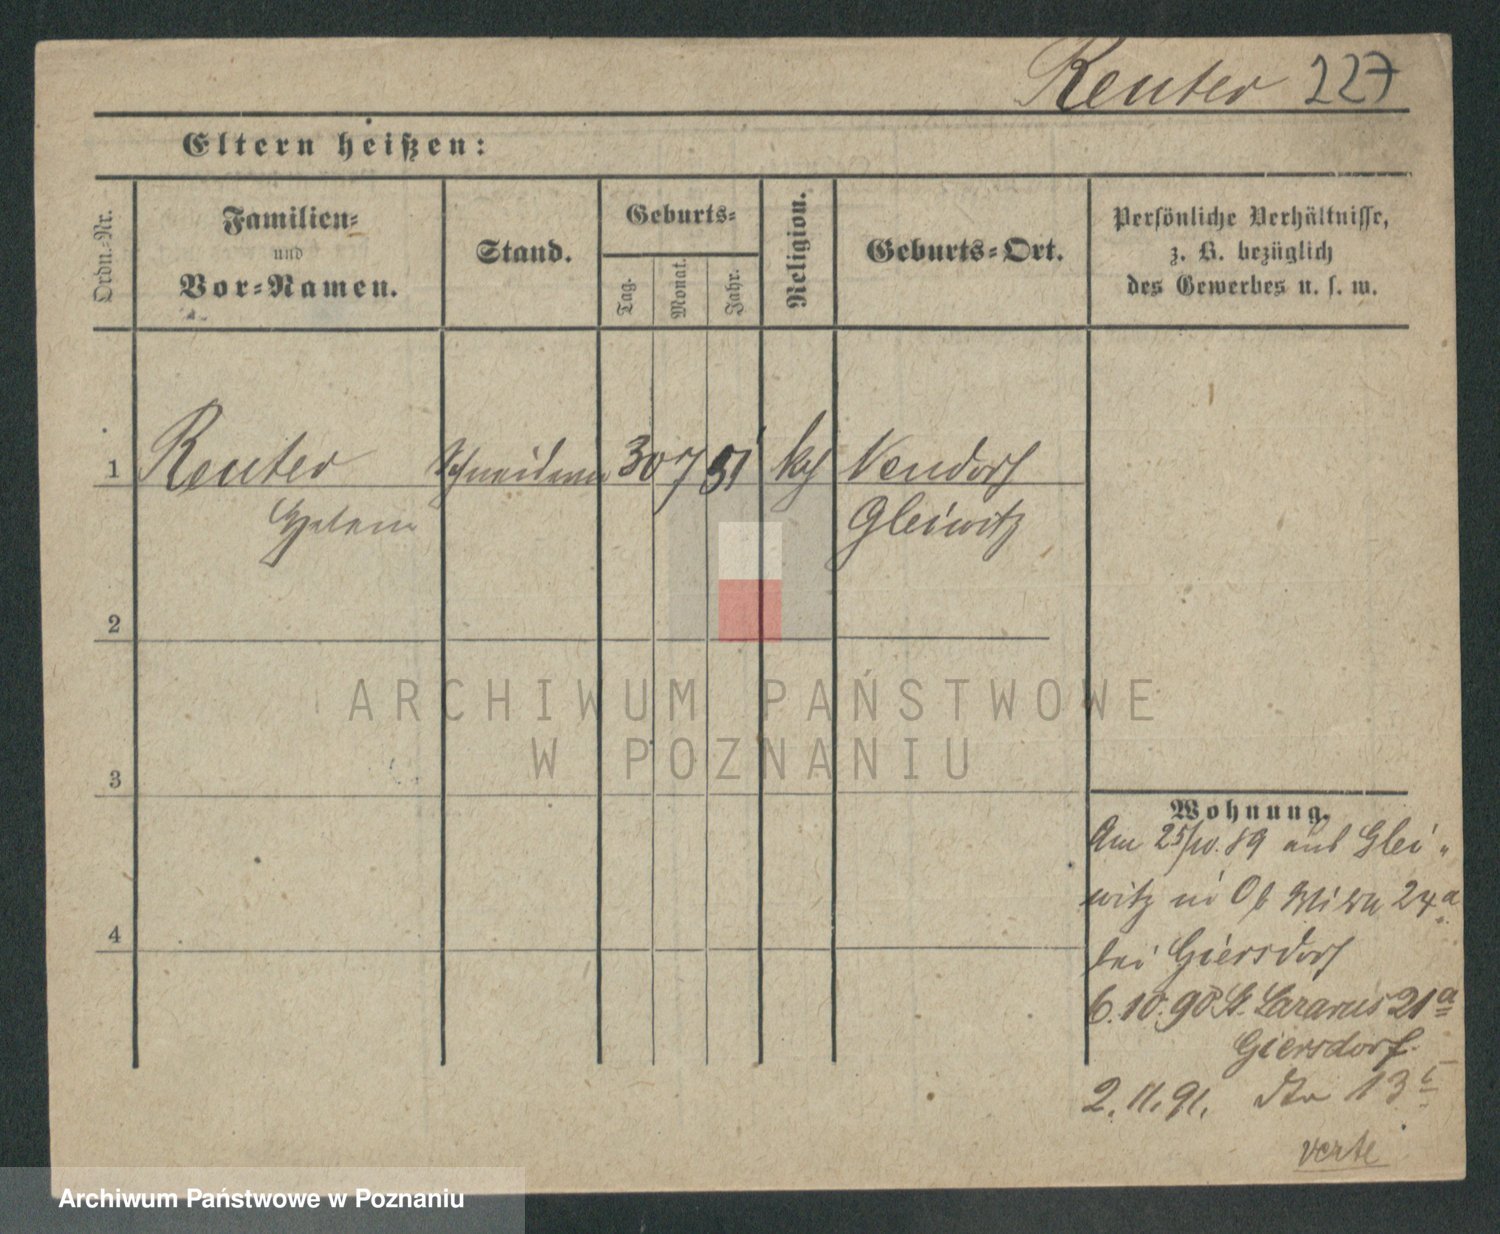 Reuter 227
Eltern heißen:
Ordn.-Nr.
Familien-
und
Vor-Namen.
Stand.
Geburts-
Tag.
Monat.
Jahr.
Religion.
Geburts-Ort.
Persönliche Verhältnisse,
z. B. bezüglich
des Gewerbes u. s. w.
1 Reuter Schneiderin 30 7 51 kg Neudorf
Helene Gleiwitz
2
3
4
ARCHIWUM PAŃSTWOWE
W POZNANIU
Wohnung.
Am 25/10. 89 aus Glei-
witz in Ob 24a
bei Giersdorf
6.10.90 St. Lazarus 21a
Giersdorf
2.11.91. dto 13
verte
Archiwum Państwowe w Poznaniu